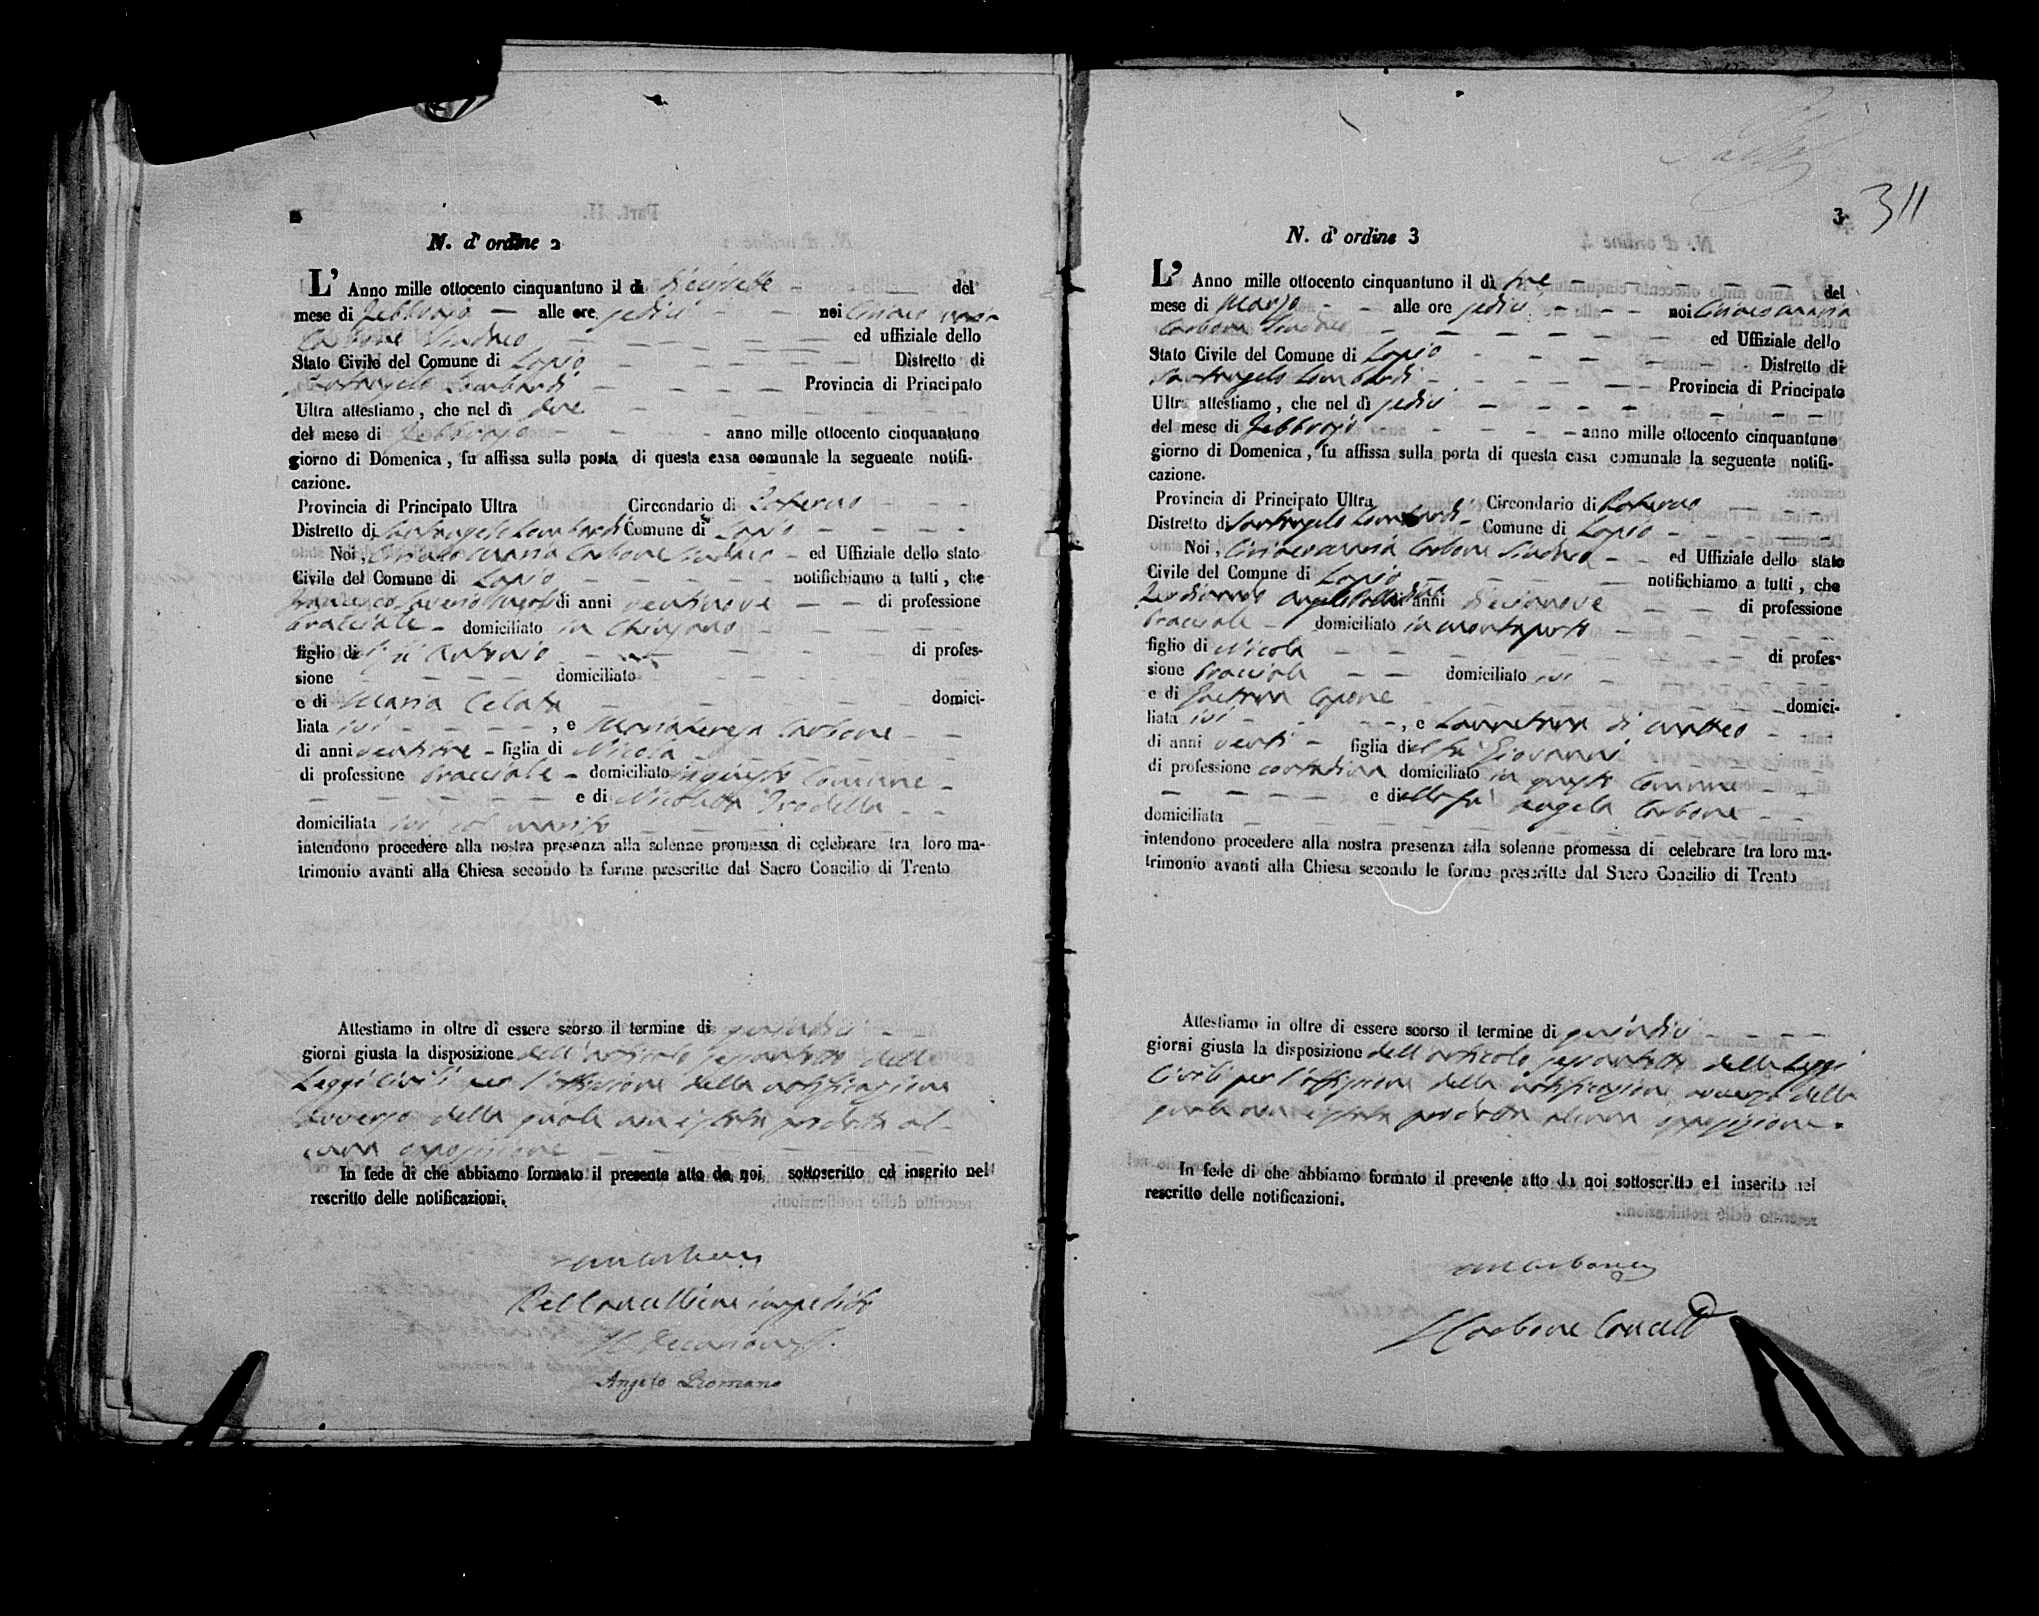 2
N. d' ordine 2
L' Anno mille ottocento cinquantuno il dì diecisette del
mese di Febbrajo alle ore sedici noi Ciriaco Maria
Carbone Sindaco ed uffiziale dello
Stato Civile del Comune di Lapio Distretto di
Santangelo Lombardi Provincia di Principato
Ultra attestiamo, che nel dì due
del mese di Febbrajo anno mille ottocento cinquantuno
giorno di Domenica, fu affissa sulla porta di questa casa comunale la seguente notifi-
cazione.
Provincia di Principato Ultra Circondario di Paterno
Distretto di Santangelo Lombardi Comune di Lapio
Noi, Ciriaco Maria Carbone Sindaco ed Uffiziale dello stato
Civile del Comune di Lapio notifichiamo a tutti, che
Francesco Saverio di anni ventinove di professione
bracciale domiciliato in Chiusano
figlio di Antonio di profes-
sione domiciliato
e di Maria Celata domici-
liata ivi, e Mariateresa Carbone
di anni ventitre figlia di Nicola
di professione bracciale domiciliato in questo Comune
e di Nicoletta Trodella
domiciliata ivi col marito
intendono procedere alla nostra presenza alla solenne promessa di celebrare tra loro ma-
trimonio avanti alla Chiesa secondo le forme prescritte dal Sacro Concilio di Trento
Attestiamo in oltre di essere scorso il termine di quindici
giorni giusta la disposizione dell'articolo sessantotto delle
Leggi Civili per l'affissione della notificazione
avverso della quale non è stata prodotta al-
cuna opposizione
In fede di che abbiamo formato il presente atto da noi sottoscritto ed inserito nel
rescritto delle notificazioni.
Pel Cancelliere impedito
Il Decurione
Angelo Romano
3
311
N. d' ordine 3
L' Anno mille ottocento cinquantuno il dì tre del
mese di Marzo alle ore sedici noi Ciriaco Maria
Carbone Sindaco ed Uffiziale dello
Stato Civile del Comune di Lapio Distretto di
Santangelo Lombardi Provincia di Principato
Ultra attestiamo, che nel dì sedici
del mese di Febbrajo anno mille ottocento cinquantuno
giorno di Domenica, fu affissa sulla porta di questa casa comunale la seguente notifi-
cazione.
Provincia di Principato Ultra Circondario di Paterno
Distretto di Santangelo Lombardi Comune di Lapio
Noi, Ciriaco Maria Carbone Sindaco ed Uffiziale dello stato
Civile del Comune di Lapio notifichiamo a tutti, che
Ferdinando Angelo di anni diecinove di professione
bracciale domiciliato in Montaperto
figlio di Nicola di profes-
sione bracciale domiciliato ivi
e di Gaetana Capone domici-
liata ivi, e Lauretana di Matteo
di anni venti figlia del fu Giovanni
di professione contadina domiciliato in questo Comune
e di della fu Angela Carbone
domiciliata
intendono procedere alla nostra presenza alla solenne promessa di celebrare tra loro ma-
trimonio avanti alla Chiesa secondo le forme prescritte dal Sacro Concilio di Trento
Attestiamo in oltre di essere scorso il termine di quindici
giorni giusta la disposizione dell'articolo sessantotto delle Leggi
Civili per l'affissione della notificazione avverso della
quale non è stata prodotta alcuna opposizione.
In fede di che abbiamo formato il presente atto da noi sottoscritto ed inserito nel
rescritto delle notificazioni.
Carbone